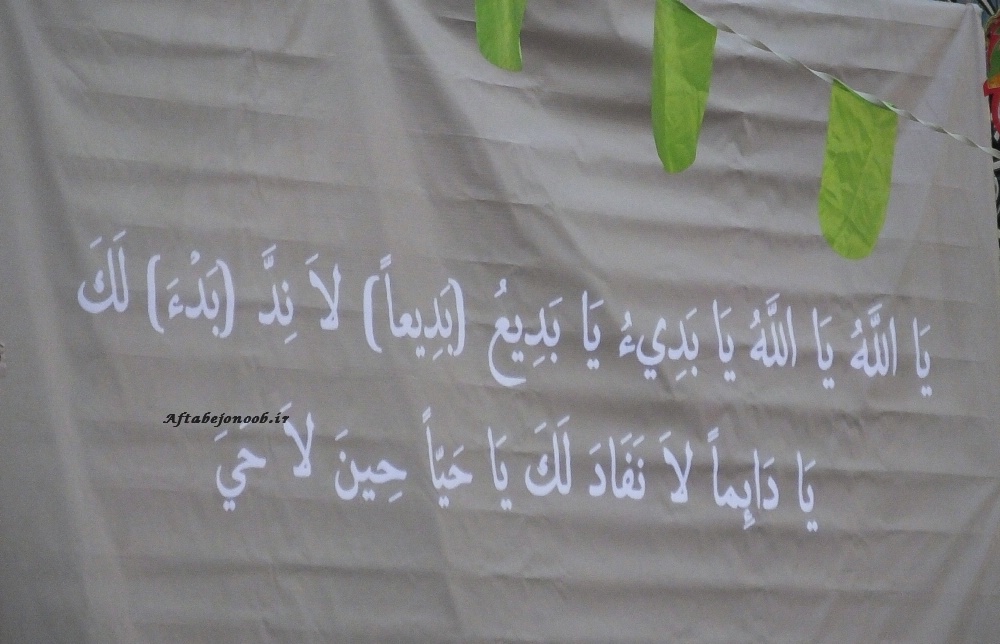 يَا اللَّهُ يَا اللَّهُ يَا بَدِيءُ يَا بَدِيعُ (بَدِيعاً) لاَ نِدَّ (بَدْءَ) لَكَ
يَا دَايِماً لاَ نَفَادَ لَكَ يَا حَيّاً حِينَ لاَ حَيَ
Aftabejonoob.ir